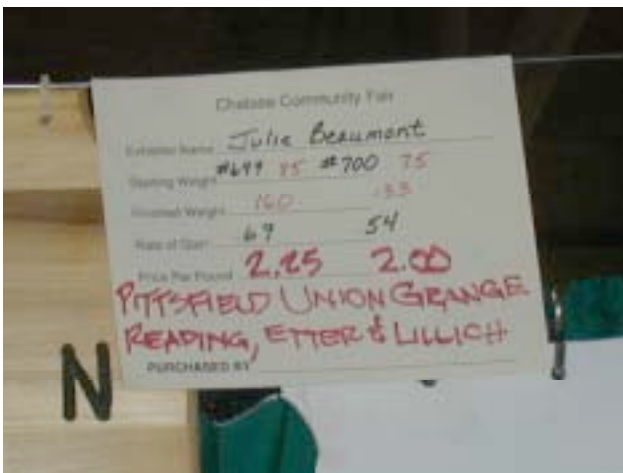 Chelsea Community Fair
Exhibitor Name Julie Beaumont
Starting Weight #699 85 #700 75
Finished Weight 160 133
Rate of Gain 67 54
Price Per Pound 2.25 2.00
PITTSFIELD UNION GRANGE
READING, ETTER & LILLICH
PURCHASED BY
N